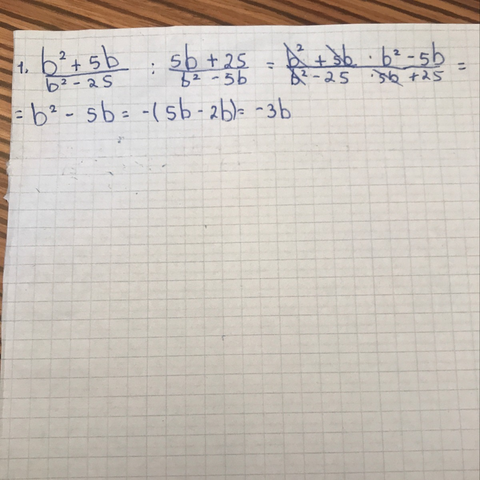 1. b² + 5b / b² - 25 : 5b + 25 / b² - 5b = b² + 5b · b² - 5b / b² - 25 · 5b + 25 =
= b² - 5b = -(5b - 2b) = -3b